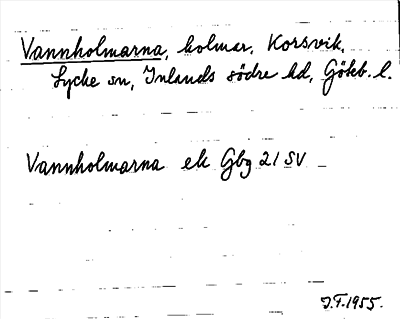 Vannholmarna, holmar, Korsvik,
Lycke sn, Inlands södre hd, Göteb. l.
Vannholmarna ek Gbg 21 SV
J.F. 1955.